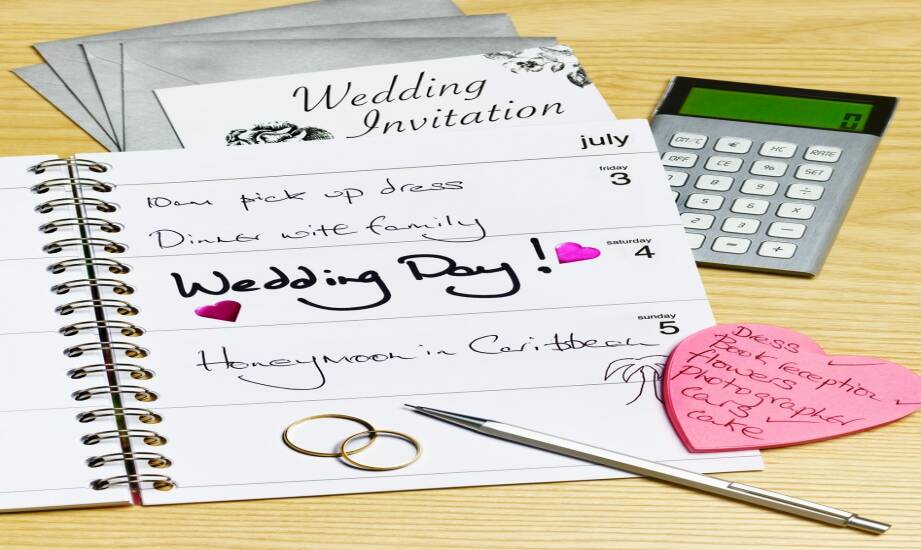 Wedding
Invitation
july
friday
3
10am pick up dress
Dinner with family
saturday
4
Wedding Day!
sunday
5
Honeymoon in Caribbean
0
ON/C € HC RATE
OFF CE % SET
7 8 9 ÷
5 6 x
2 3 −
= +
Dress
Book reception
flowers
Photographer
Cars
cake